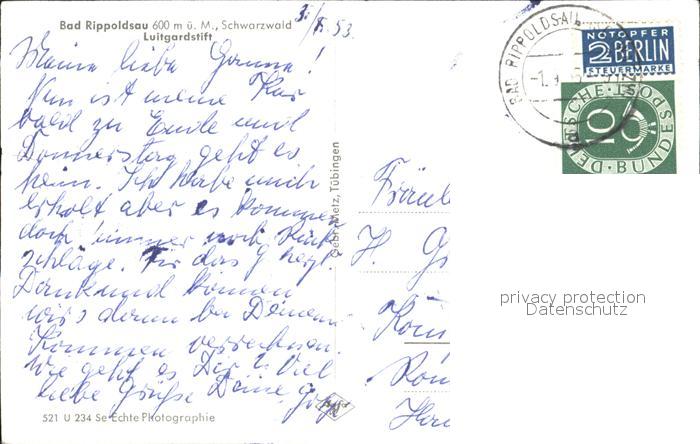 Bad Rippoldsau 600 m ü. M., Schwarzwald
Luitgardstift
53.
Meine liebe
Nun ist meine Kur
bald zu Ende und
Donnerstag geht es
heim. Ich habe mich
erholt aber es kommen
doch immer noch Rück
schläge. Für das herzl.
Dank und können
wir's dann bei Deinem
Kommen verrechnen.
Wie geht es Dir? Viel
liebe Grüße Deine
521 U 234 Se Echte Photographie
Gebr. Metz, Tübingen
BAD RIPPOLDSAU
NOTOPFER
2 BERLIN
STEUERMARKE
DEUTSCHE BUNDESPOST
10
Fräul
H.
privacy protection
Datenschutz